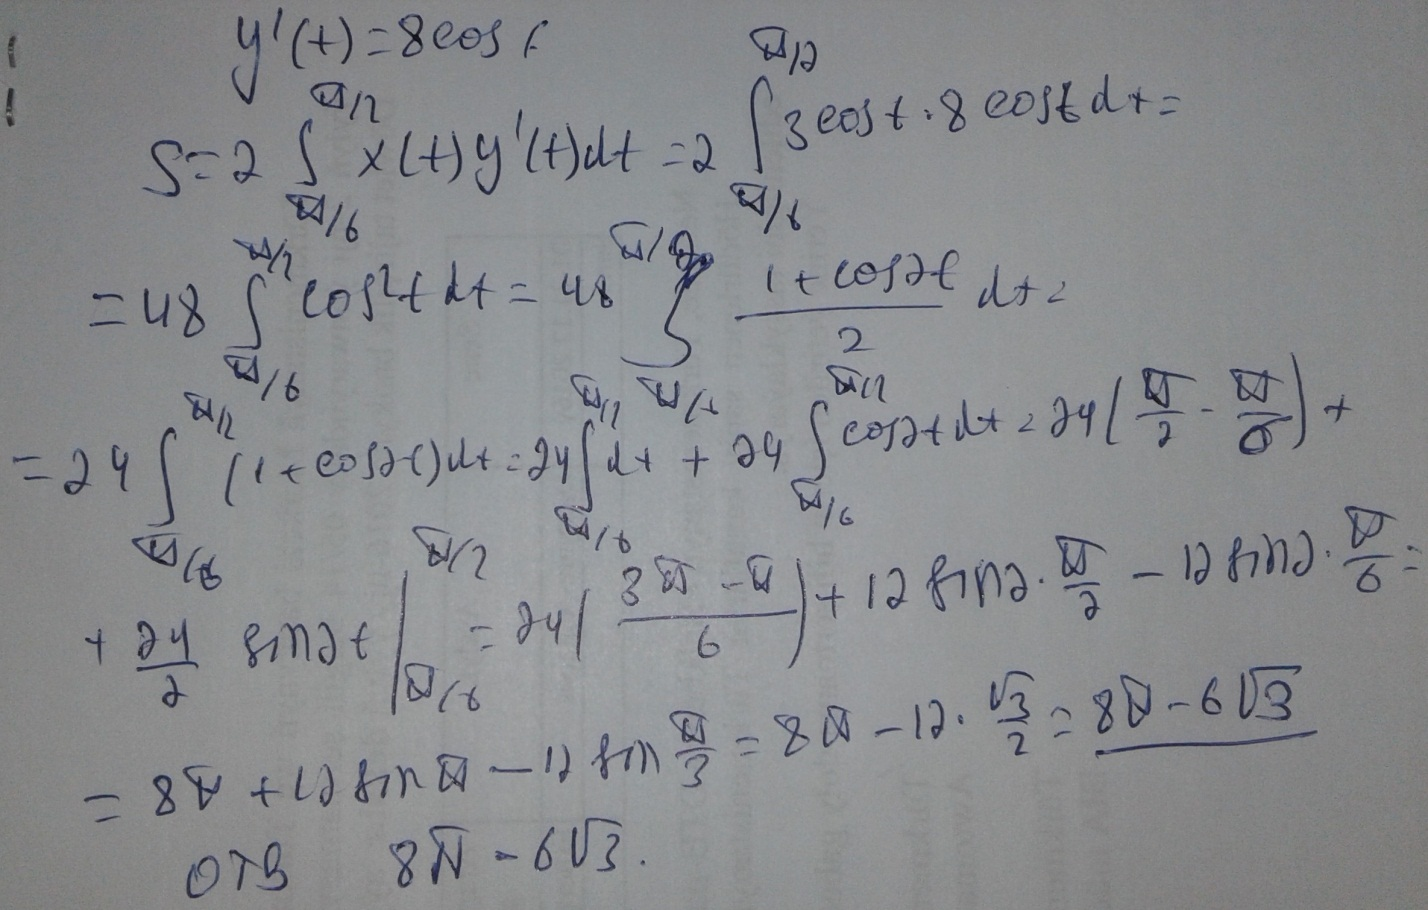 y'(t)=8cos t
S=2 ∫_{π/6}^{π/2} x(t)y'(t)dt =2 ∫_{π/6}^{π/2} 3cost·8costdt=
=48 ∫_{π/6}^{π/2} cos²t dt = 48 ∫_{π/6}^{π/2} (1+cos2t)/2 dt=
=24 ∫_{π/6}^{π/2} (1+cos2t)dt=24∫_{π/6}^{π/2} dt + 24 ∫_{π/6}^{π/2} cos2tdt=24(π/2-π/6)+
+ 24/2 sin2t|_{π/6}^{π/2} =24((3π-π)/6)+12 sin2·π/2 - 12 sin2·π/6=
= 8π+12 sin π - 12 sin π/3 = 8π-12·√3/2= 8π-6√3
ОТВ 8π-6√3.